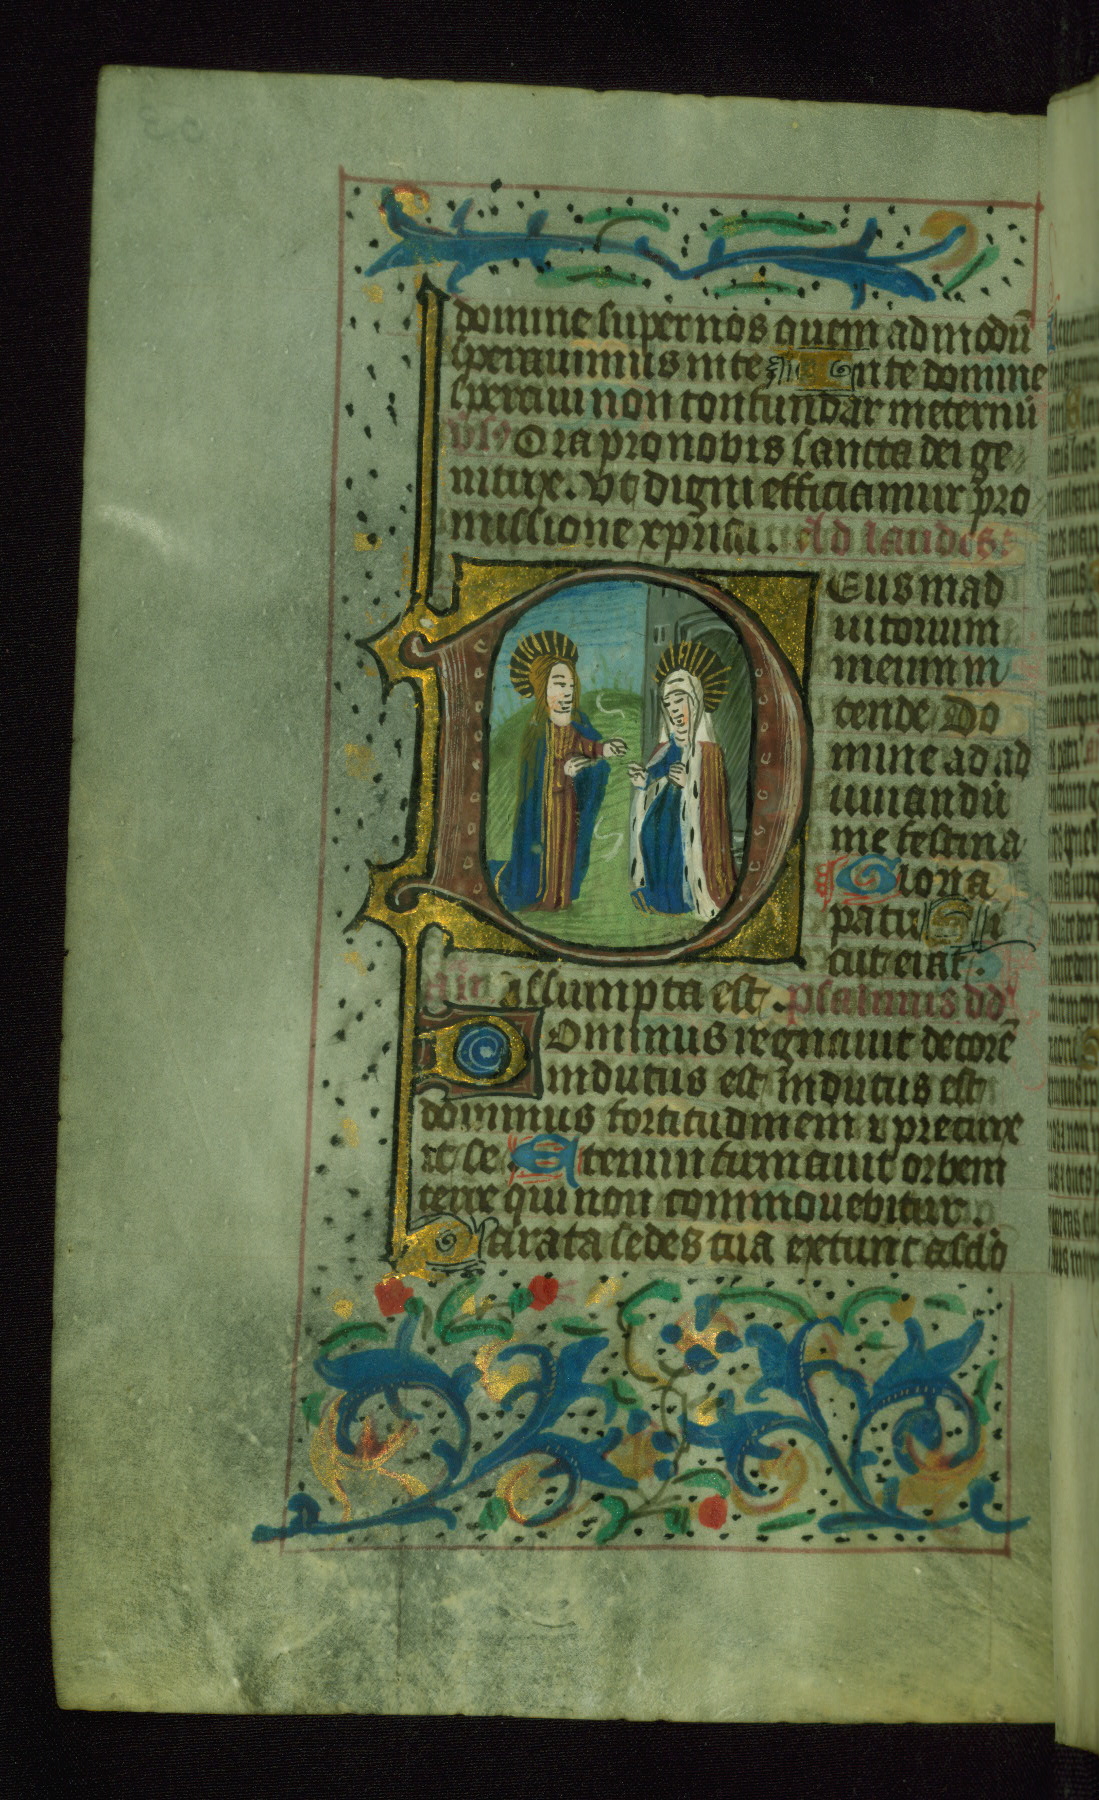 domine super nos quem ad modū
sperauimus in te In te domine
speraui non confundar in eternū
Ora pro nobis sancta dei ge
nitrix. Vt digni efficiamur pro
missione xpristi. Ad laudes
DEus in ad
iutorium
meum in
tende Do
mine ad ad
iuuandū
me festina
Gloria
patri Si
cut erat.
añ Assumpta est. psalmus dd
Dominus regnauit decorē
indutus est indutus est
dominus fortitudinem v precinx
it se Etenim firmauit orbem
terre qui non commouebitur.
Parata sedes tua extunc a sclō